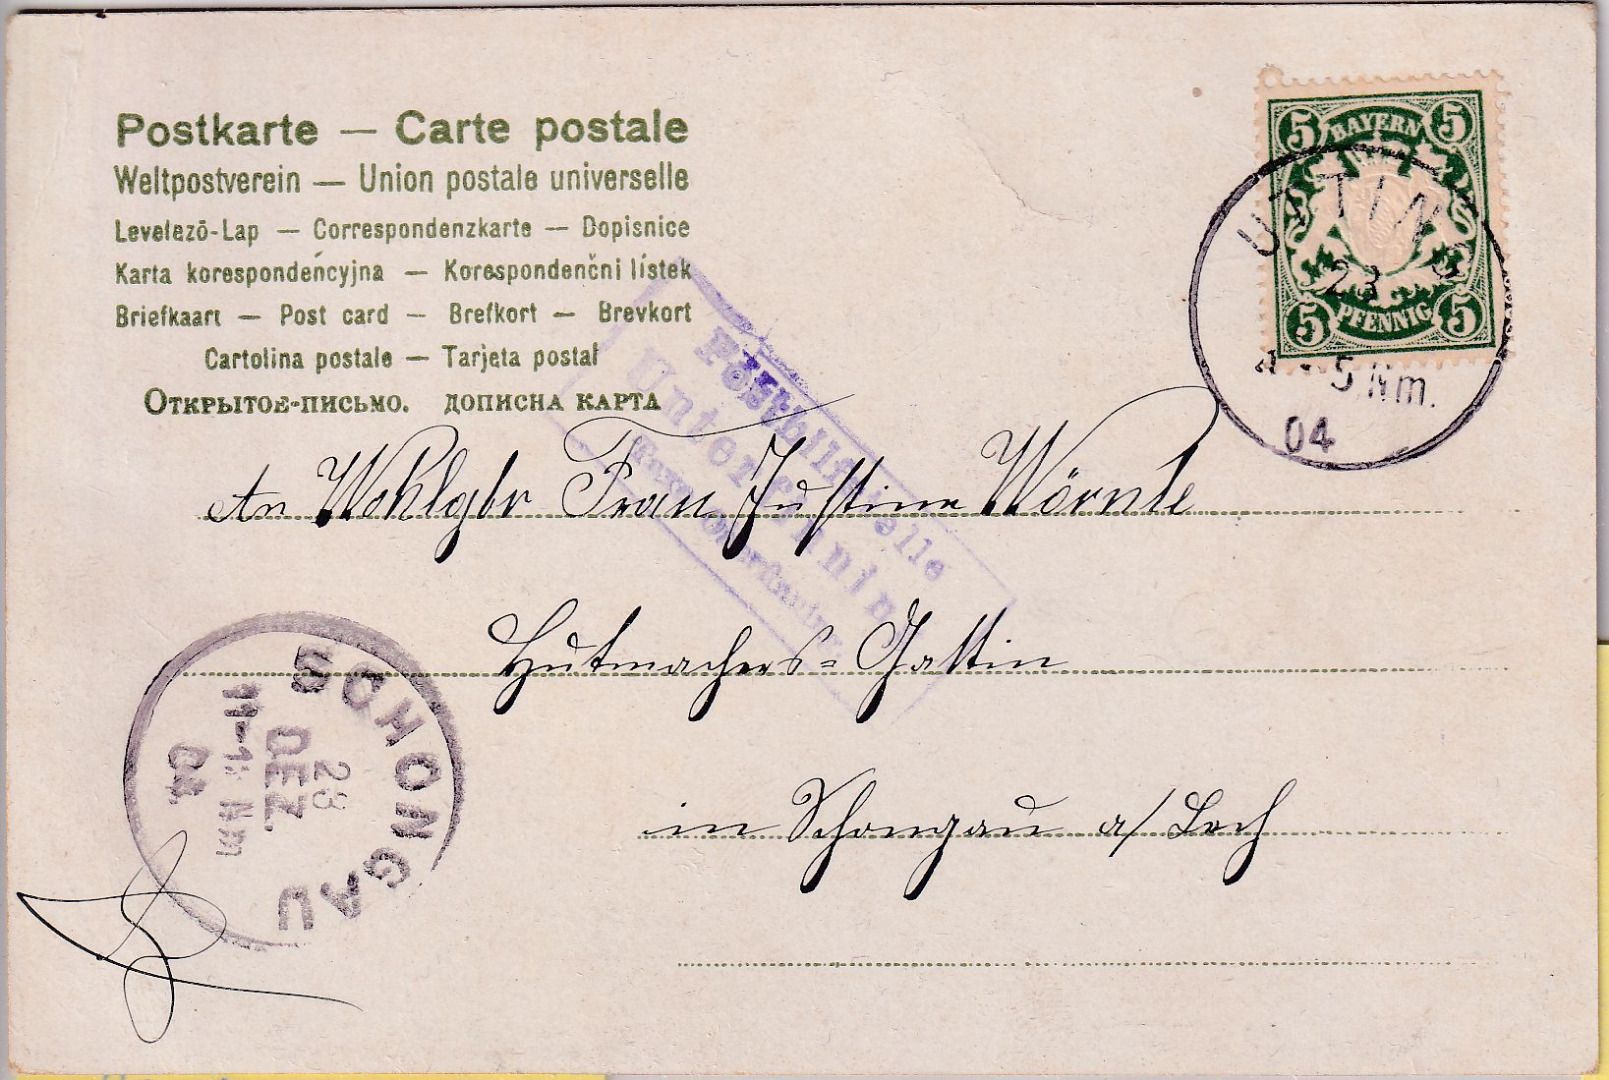 Postkarte — Carte postale
Weltpostverein — Union postale universelle
Levelezō-Lap — Correspondenzkarte — Dopisnice
Karta korespondeńcyjna — Korespondenčni lístek
Briefkaart — Post card — Brefkort — Brevkort
Cartolina postale — Tarjeta postal
Открытое-письмо. дописна карта
5 BAYERN 5
5 PFENNIG 5
UTTING
23
4-5 Nm.
04
Posthilfstelle
An Wohlgbr Frau Justine Wörnle
Hutmachers=Gattin
in Schongau a/Lech
SCHONGAU
23
DEZ.
Nm
04.